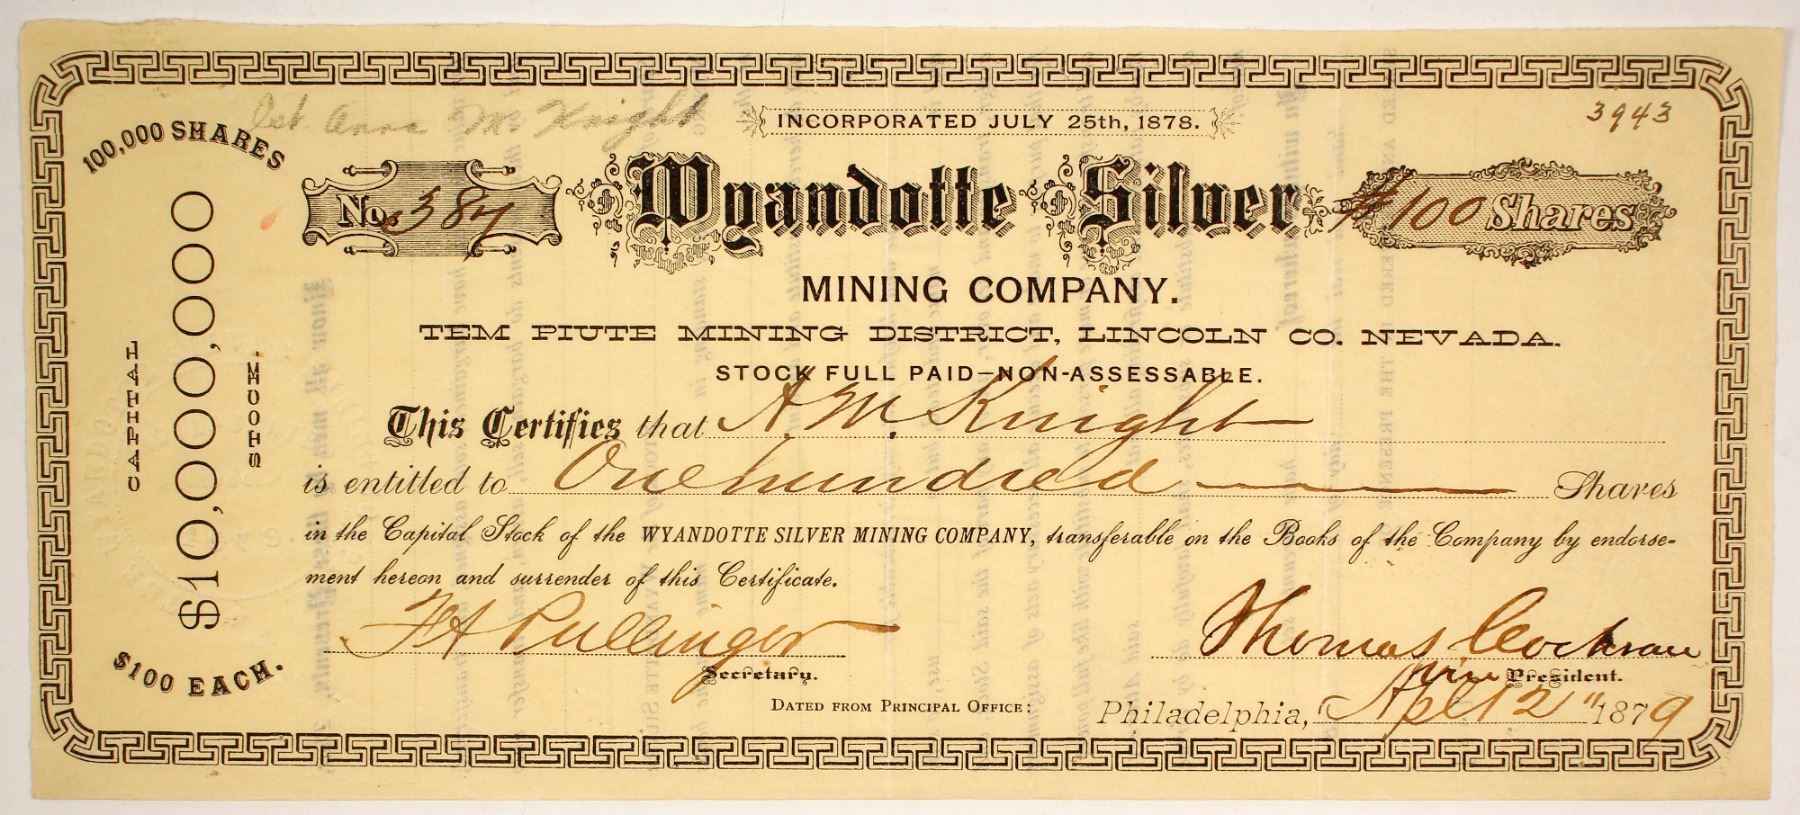 Est Anna M. Knight
INCORPORATED JULY 25th, 1878.
3943
100,000 SHARES
CAPITAL
$10,000,000
$100 EACH.
No. 384
Wyandotte Silver
# 100 Shares
MINING COMPANY.
TEM PIUTE MINING DISTRICT, LINCOLN CO. NEVADA.
STOCK FULL PAID–NON-ASSESSABLE.
This Certifies that A. M. Knight
is entitled to One hundred Shares
in the Capital Stock of the WYANDOTTE SILVER MINING COMPANY, transferable on the Books of the Company by endorse-
ment hereon and surrender of this Certificate.
Pullinger
Thomas Cochran
Secretary.
vice President.
DATED FROM PRINCIPAL OFFICE:
Philadelphia, Apl 12" 1879